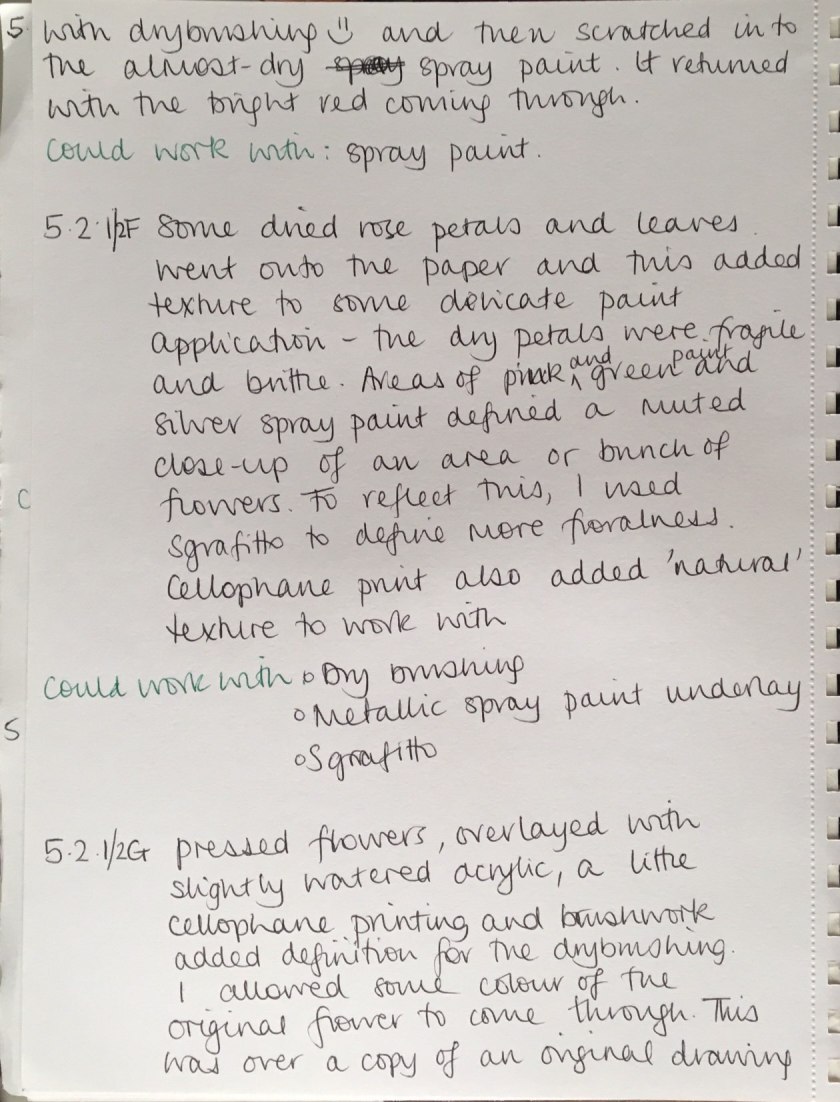 5 with drybrushing☺ and then scratched in to
the almost-dry spray spray paint. It returned
with the bright red coming through.
Could work with: spray paint.
5.2.1/2F Some dried rose petals and leaves
went onto the paper and this added
texture to some delicate paint
application – the dry petals were fragile
and brittle. Areas of pink and green paint and
silver spray paint defined a muted
close-up of an area or bunch of
flowers. To reflect this, I used
Sgrafitto to define more floralness.
Cellophane print also added 'natural'
texture to work with
Could work with ◦ Dry brushing
◦ Metallic spray paint underlay
◦ Sgrafitto
5.2.1/2G pressed flowers, overlayed with
slightly watered acrylic, a little
cellophane printing and brushwork
added definition for the drybrushing.
I allowed some colour of the
original flower to come through. This
was over a copy of an original drawing
C
S